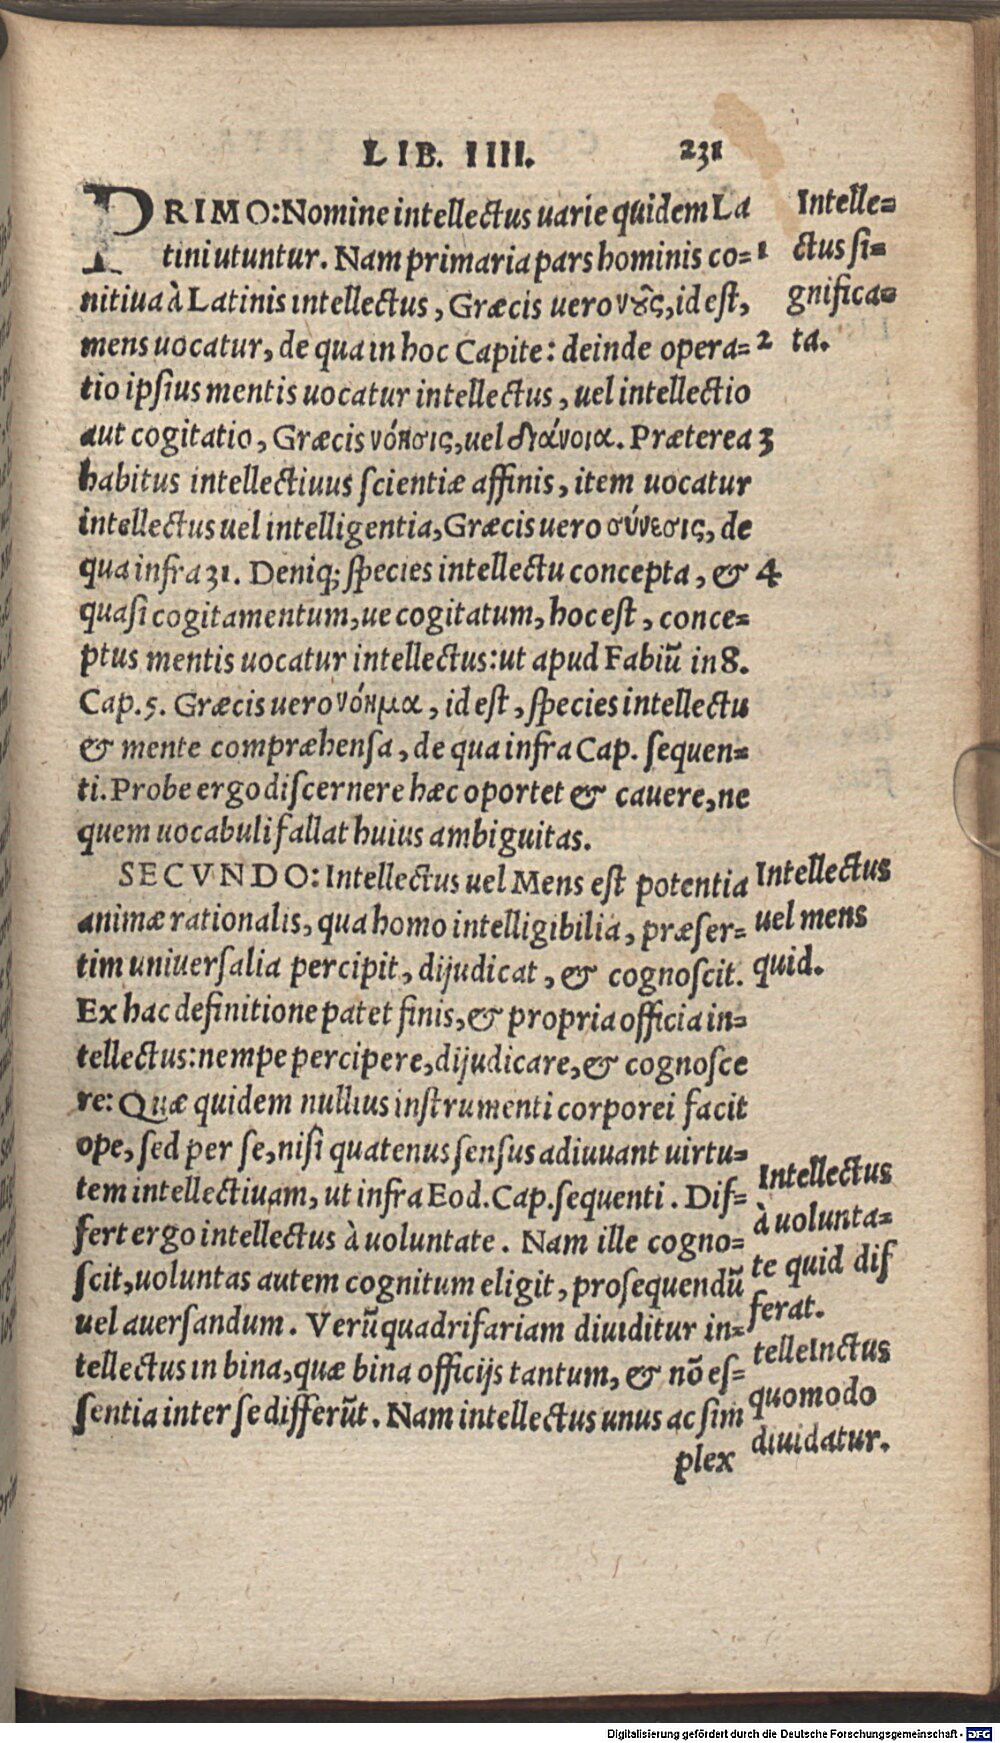 LIB. IIII. 231
PRIMO: Nomine intellectus uarie quidem La
tini utuntur. Nam primaria pars hominis co= 1
nitiua à Latinis intellectus, Græcis uero νοῦς, id est,
mens uocatur, de qua in hoc Capite: deinde opera= 2
tio ipsius mentis uocatur intellectus, uel intellectio
aut cogitatio, Græcis νόησις, uel διάνοια. Præterea 3
habitus intellectiuus scientiæ affinis, item uocatur
intellectus uel intelligentia, Græcis uero σύνεσις, de
qua infra 31. Deniq; species intellectu concepta, & 4
quasi cogitamentum, ue cogitatum, hoc est, conce=
ptus mentis uocatur intellectus: ut apud Fabiū in 8.
Cap. 5. Græcis uero νόημα, id est, species intellectu
& mente compræhensa, de qua infra Cap. sequen=
ti. Probe ergo discernere hæc oportet & cauere, ne
quem uocabuli fallat huius ambiguitas.
SECVNDO: Intellectus uel Mens est potentia
animæ rationalis, qua homo intelligibilia, præser=
tim uniuersalia percipit, dijudicat, & cognoscit.
Ex hac definitione patet finis, & propria officia in=
tellectus: nempe percipere, dijudicare, & cognosce
re: Quæ quidem nullius instrumenti corporei facit
ope, sed per se, nisi quatenus sensus adiuuant uirtu=
tem intellectiuam, ut infra Eod. Cap. sequenti. Dif=
fert ergo intellectus à uoluntate. Nam ille cogno=
scit, uoluntas autem cognitum eligit, prosequendū
uel auersandum. Verū quadrifariam diuiditur in=
tellectus in bina, quæ bina officijs tantum, & nō es=
sentia inter se differūt. Nam intellectus unus ac sim
plex
Intelle=
ctus si=
gnifica=
ta.
Intellectus
uel mens
quid.
Intellectus
à uolunta=
te quid dif
ferat.
telleInctus
quomodo
diuidatur.
Digitalisierung gefördert durch die Deutsche Forschungsgemeinschaft - DFG